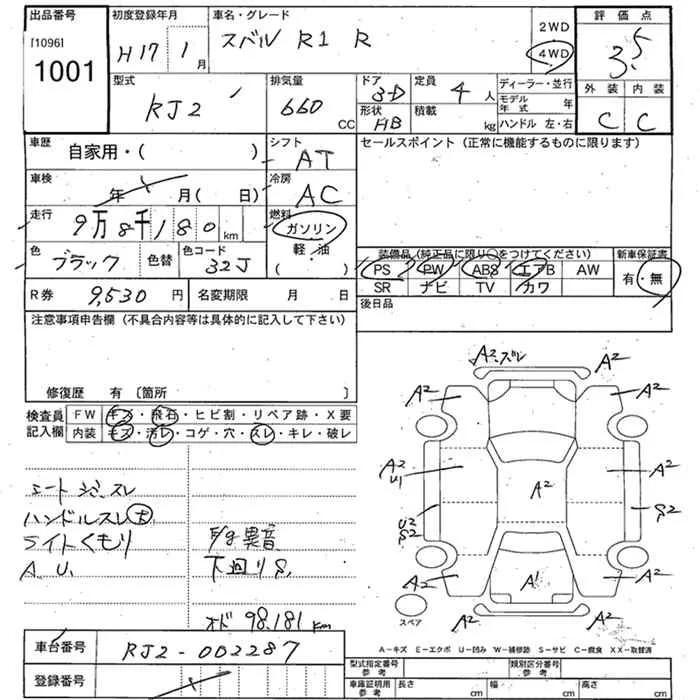 出品番号 初度登録年月 車名・グレード 評価点
[1096]
1001
H17 1月
スバル R1 R
2WD
4WD
3.5
型式 排気量 ドア 定員 ディーラー・並行 外装 内装
RJ2 660 CC
3-D 4人
モデル年式 年
形状 積載
HB kg
ハンドル 左・右
C C
車歴 自家用・( )
シフト AT
セールスポイント (正常に機能するものに限ります)
車検 年 月( 日)
冷房 AC
走行 9万8千180 km
燃料 ガソリン
軽・油
( )
色 ブラック 色替 色コード 32J
装備品(純正品に限り○をつけてください) 新車保証書
PS PW ABS エアB AW 有・無
SR ナビ TV カワ
R券 9,530円 名変期限 月 日
後日品
注意事項申告欄 (不具合内容等は具体的に記入して下さい)
修復歴 有 〔箇所 〕
検査員記入欄
FW キズ・飛石・ヒビ割・リペア跡・X要
内装 キズ・汚レ・コゲ・穴・スレ・キレ・破レ
ハンドルスレ大
ライトくもり
A.U.
F/g異音
下回りS
オド 98,181km
A2.ズレ A2
A2 A2
A2
U1
A2
A2
U2
S2
S2
A2 A1 A2
A2 A2
スペア
A-キズ E-エクボ U-凹み W-補修跡 S-サビ C-腐食 XX-取替済
車台番号 RJ2-002287
登録番号
型式指定番号 参考 類別区分番号 参考
車庫証明用 参考 長さ cm 幅 cm 高さ cm